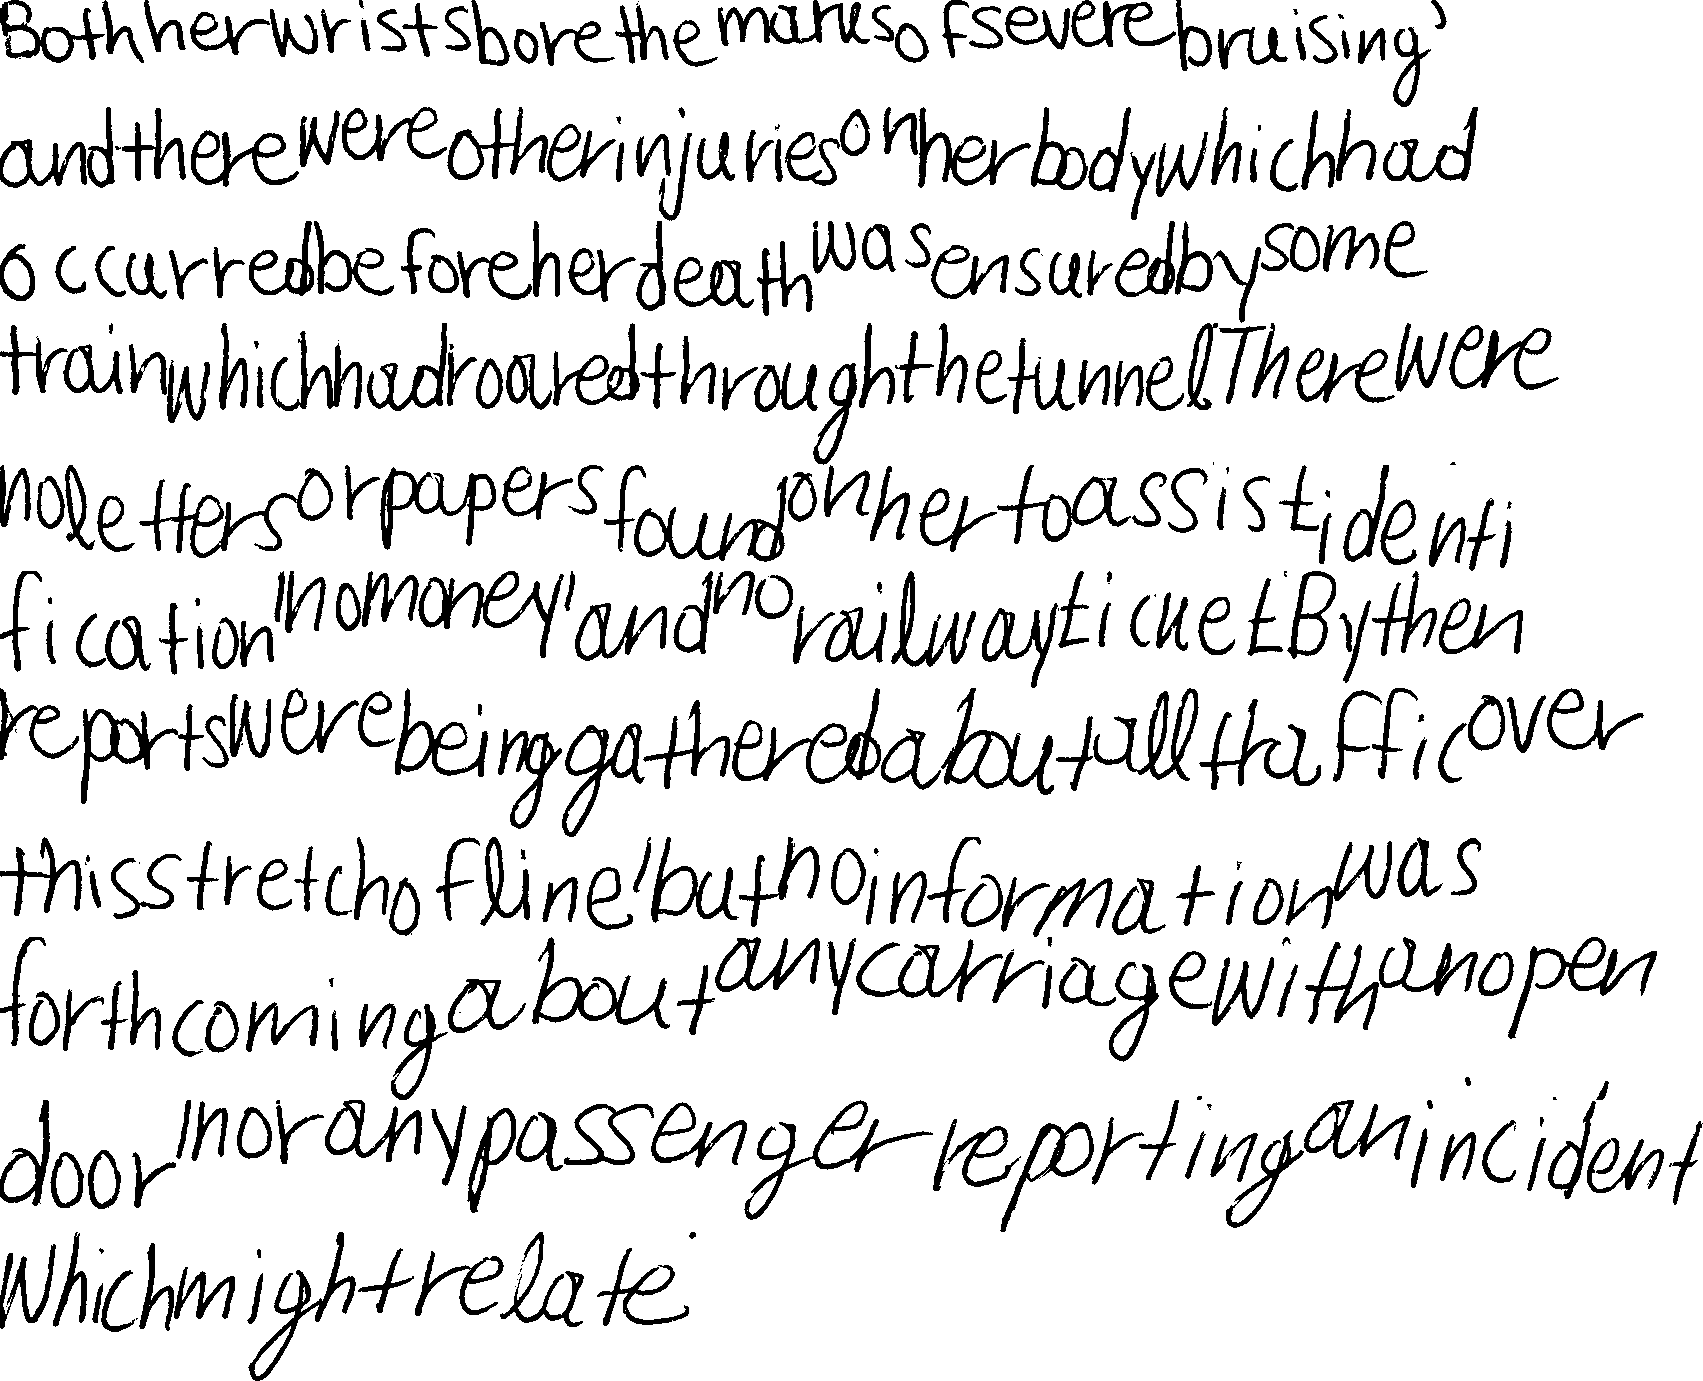 Both her wrists bore the marks of severe bruising,
and there were other injuries on her body which had
occurred before her death was ensured by some
train which had roared through the tunnel There were
no letters or papers found on her to assist identi
fication, no money, and no railway ticket By then
reports were being gathered about all traffic over
this stretch of line, but no information was
forthcoming about any carriage with an open
door, nor any passenger reporting an incident
which might relate.